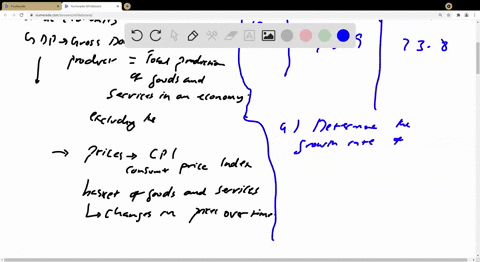 GDP → Gross Do
producer = Total production
of goods and
services in an economy
excluding he
→ prices → CPI
consumer price Index
basket of goods and services
↳ changes in prices over time
73.8
a) Determine the
Growth rate of